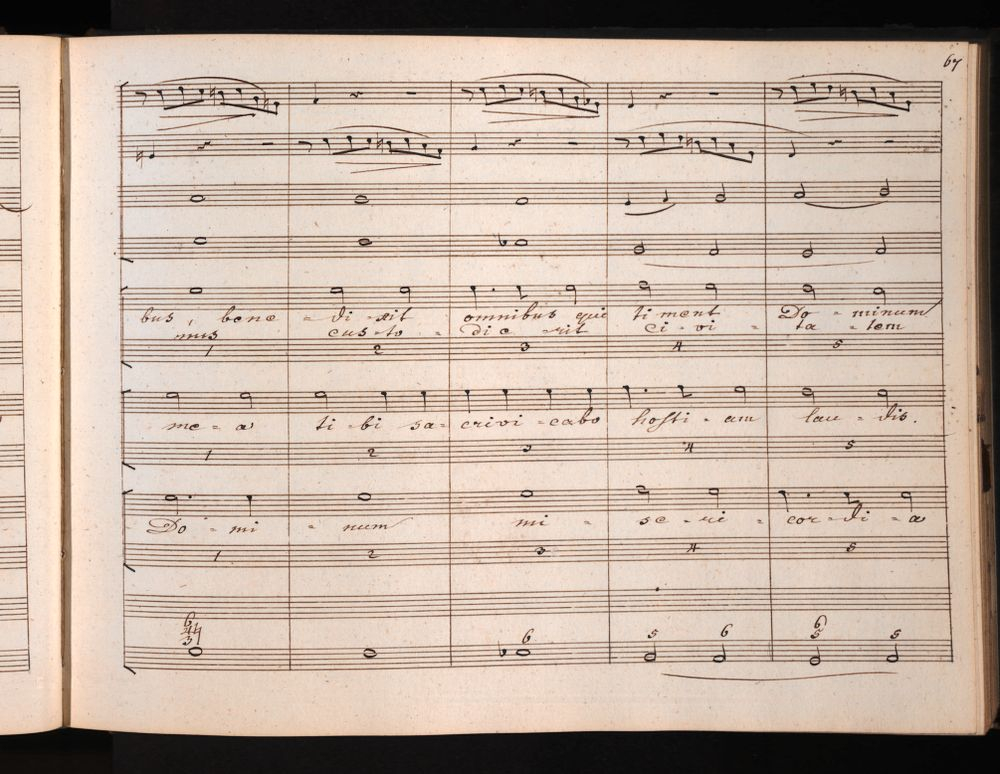 67
bus, bene - di - xit omnibus qui timent Do - minum
mus cus - to - die - rit ci - vi - ta - tem
1 2 3 4 5
me - a ti - bi sa - crivi - cabo hosti - am lau - dis.
1 2 3 4 5
Do - mi - num mi - se - ri - cor - di - a
1 2 3 4 5
6 6 5 6 6 5
4 5
3